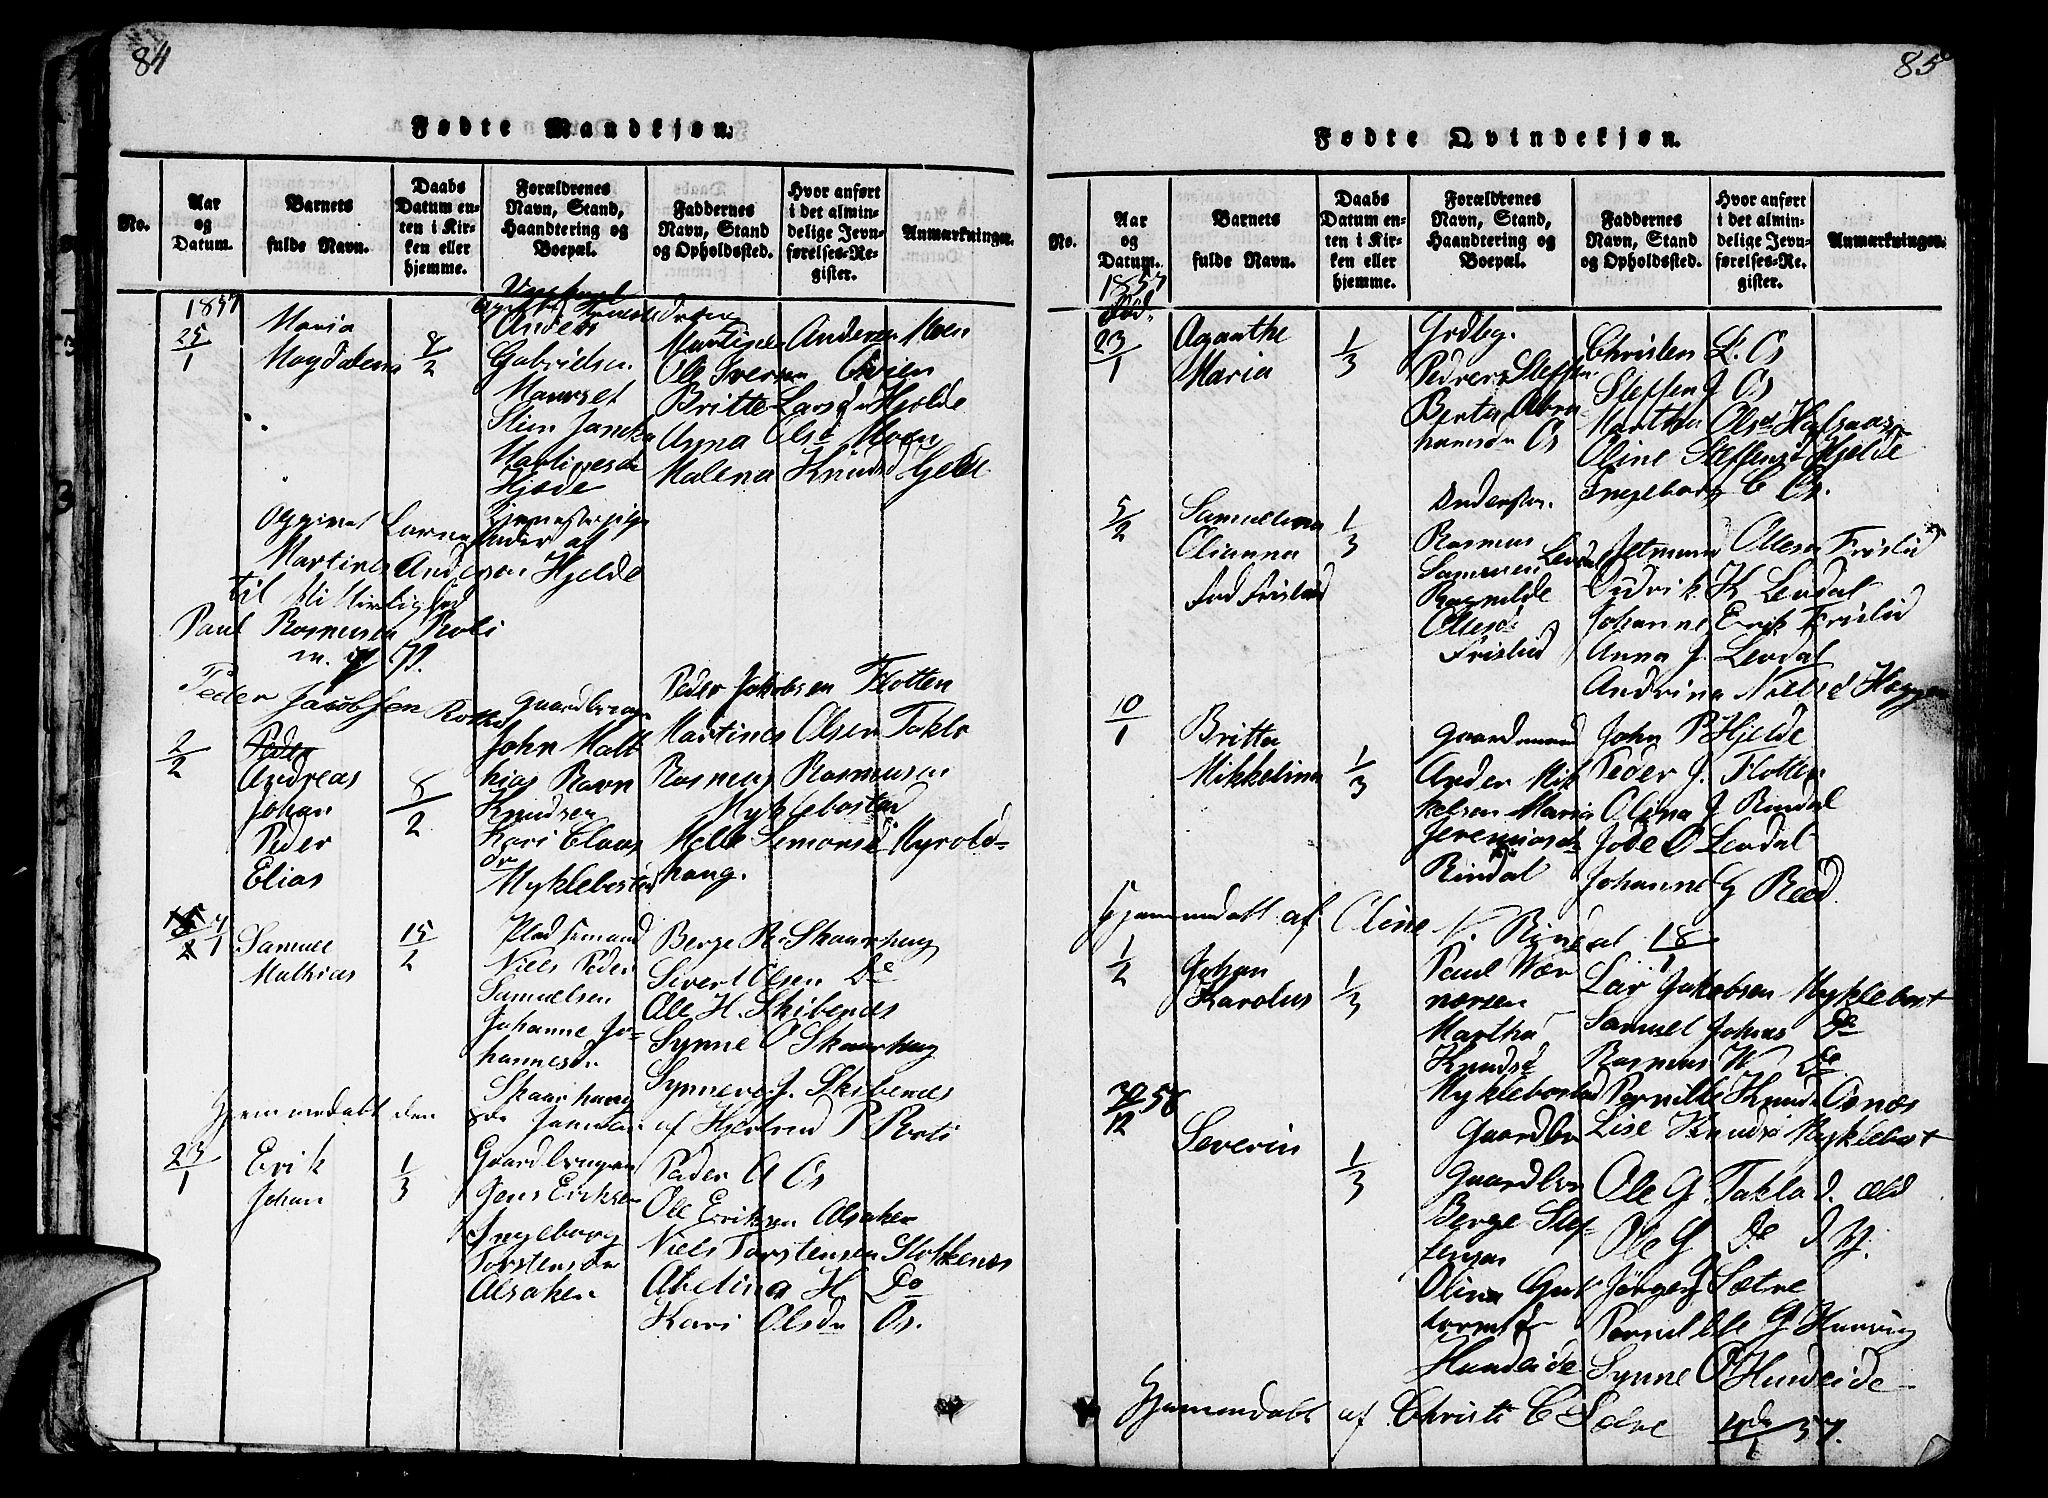 84
Fødte Mandkjøn.
No.
Aar og Datum.
Barnets fulde Navn.
Daabs Datum enten i Kirken eller hjemme.
Forældrenes Navn, Stand, Haandtering og Boepæl.
Faddernes Navn, Stand og Opholdssted.
Hvor anført i det almindelige Jevnførelses-Register.
Anmærkninger.
1857
25/1
Maria
Magdalena
8/2
Anders
Gabrielsen
Maurset
Martinesdr
Hjelde
Martines Andersen Moen
Ole Iversen
Britte Larsdr Hjelde
Anna Olsd Moen
Malena Knudsd Hjelde
Martines Andersen Hjelde
til
Paul Rasmusen Roti
Peder Jacobsen
2/2
Peder
Andreas
Johan
Peder
Elias
8/2
Gaardbruger
John Math
hias Ravn
Knudsen
Kari Claus
dr
Myklebostad
Peder Jakobsen Flotten
Martines Olsen Taklo
Rasmus Rasmusen
Myklebostad
Melle Simonsd Myrold-
haug.
7/1
Samuel
Mathias
15/2
Pladsemand
Niels Peder
Samuelsen
Johanne Jo-
hannesdr
Skaarhaug
Berge R. Skaarhaug
Sivert Olsen Do
Ole H. Skibenes
Synne O Skaarhaug
Synneve J. Skibenes
Hjemmedøbt den
af Hjertrud P Roti
23/1
Erik
Johan
1/3
Gaardbrugen
Jens Eriksen
Ingeborg
Torstensdr
Alsaker
Peder A Os
Ole Eriksen Alsaker
Niels Torstensen Stokkenes
Abelina H. Do
Kari Olsdr Os.
85
Fødte Qvindekjøn.
No.
Aar og Datum.
Barnets fulde Navn.
Daabs Datum enten i Kirken eller hjemme.
Forældrenes Navn, Stand, Haandtering og Boepæl.
Faddernes Navn, Stand og Opholdssted.
Hvor anført i det almindelige Jevnførelses-Register.
Anmærkninger.
1857
Fød.
23/1
Agnathe
Maria
1/3
Grdbg.
Peder Steffen
Berte Abra
hamsdr Os
Christen L. Os
Steffen J Os
Martha Olsd
Oline Steffensd Hjelde
Ingeborg C Os.
5/2
Samueline
Olianna
Fød Frislid
1/3
Rasmus
Samuen Levdal
Ragnilde
Ollesd
Frislid
Jetmund Ollesen Frislid
Didrik K Levdal
Johanne Erik Frislid
Anna J. Levdal
Andrina Nielsd Heggen
10/1
Britta
Mikkelina
1/3
Gaardmand
Ander Mik
kelsen Maria
Jeremiasdr
Rindal
John P Hjelde
Peder J. Flotten
Olina J Rindal
Jode O Levdal
Johanne G Reed.
Hjemmedøbt af Oline
Rindal 18/1
1/2
Johan
Karolus
1/3
Paul Wær
nersen
Martha
Knudsd
Myklebostad
Lar Jakobsen Myklebost
Samuel Johns Do
Rasmus W Do
Pernille Knudsd Osnæs
Lise Knudsd Myklebost
30/12 56
Severin
1/3
Gaardbr
Gaardbr
Berge Stef
fensen
Olina Gut
tormsdr
Hundeide
Ole G Taklo d. æld
Ole G De d Y.
Jørgen J Sætre
Pernille G Hunvig
Synne O Hundeide
Hjemmedøbt af Christi C Sætre 4de/1 57.